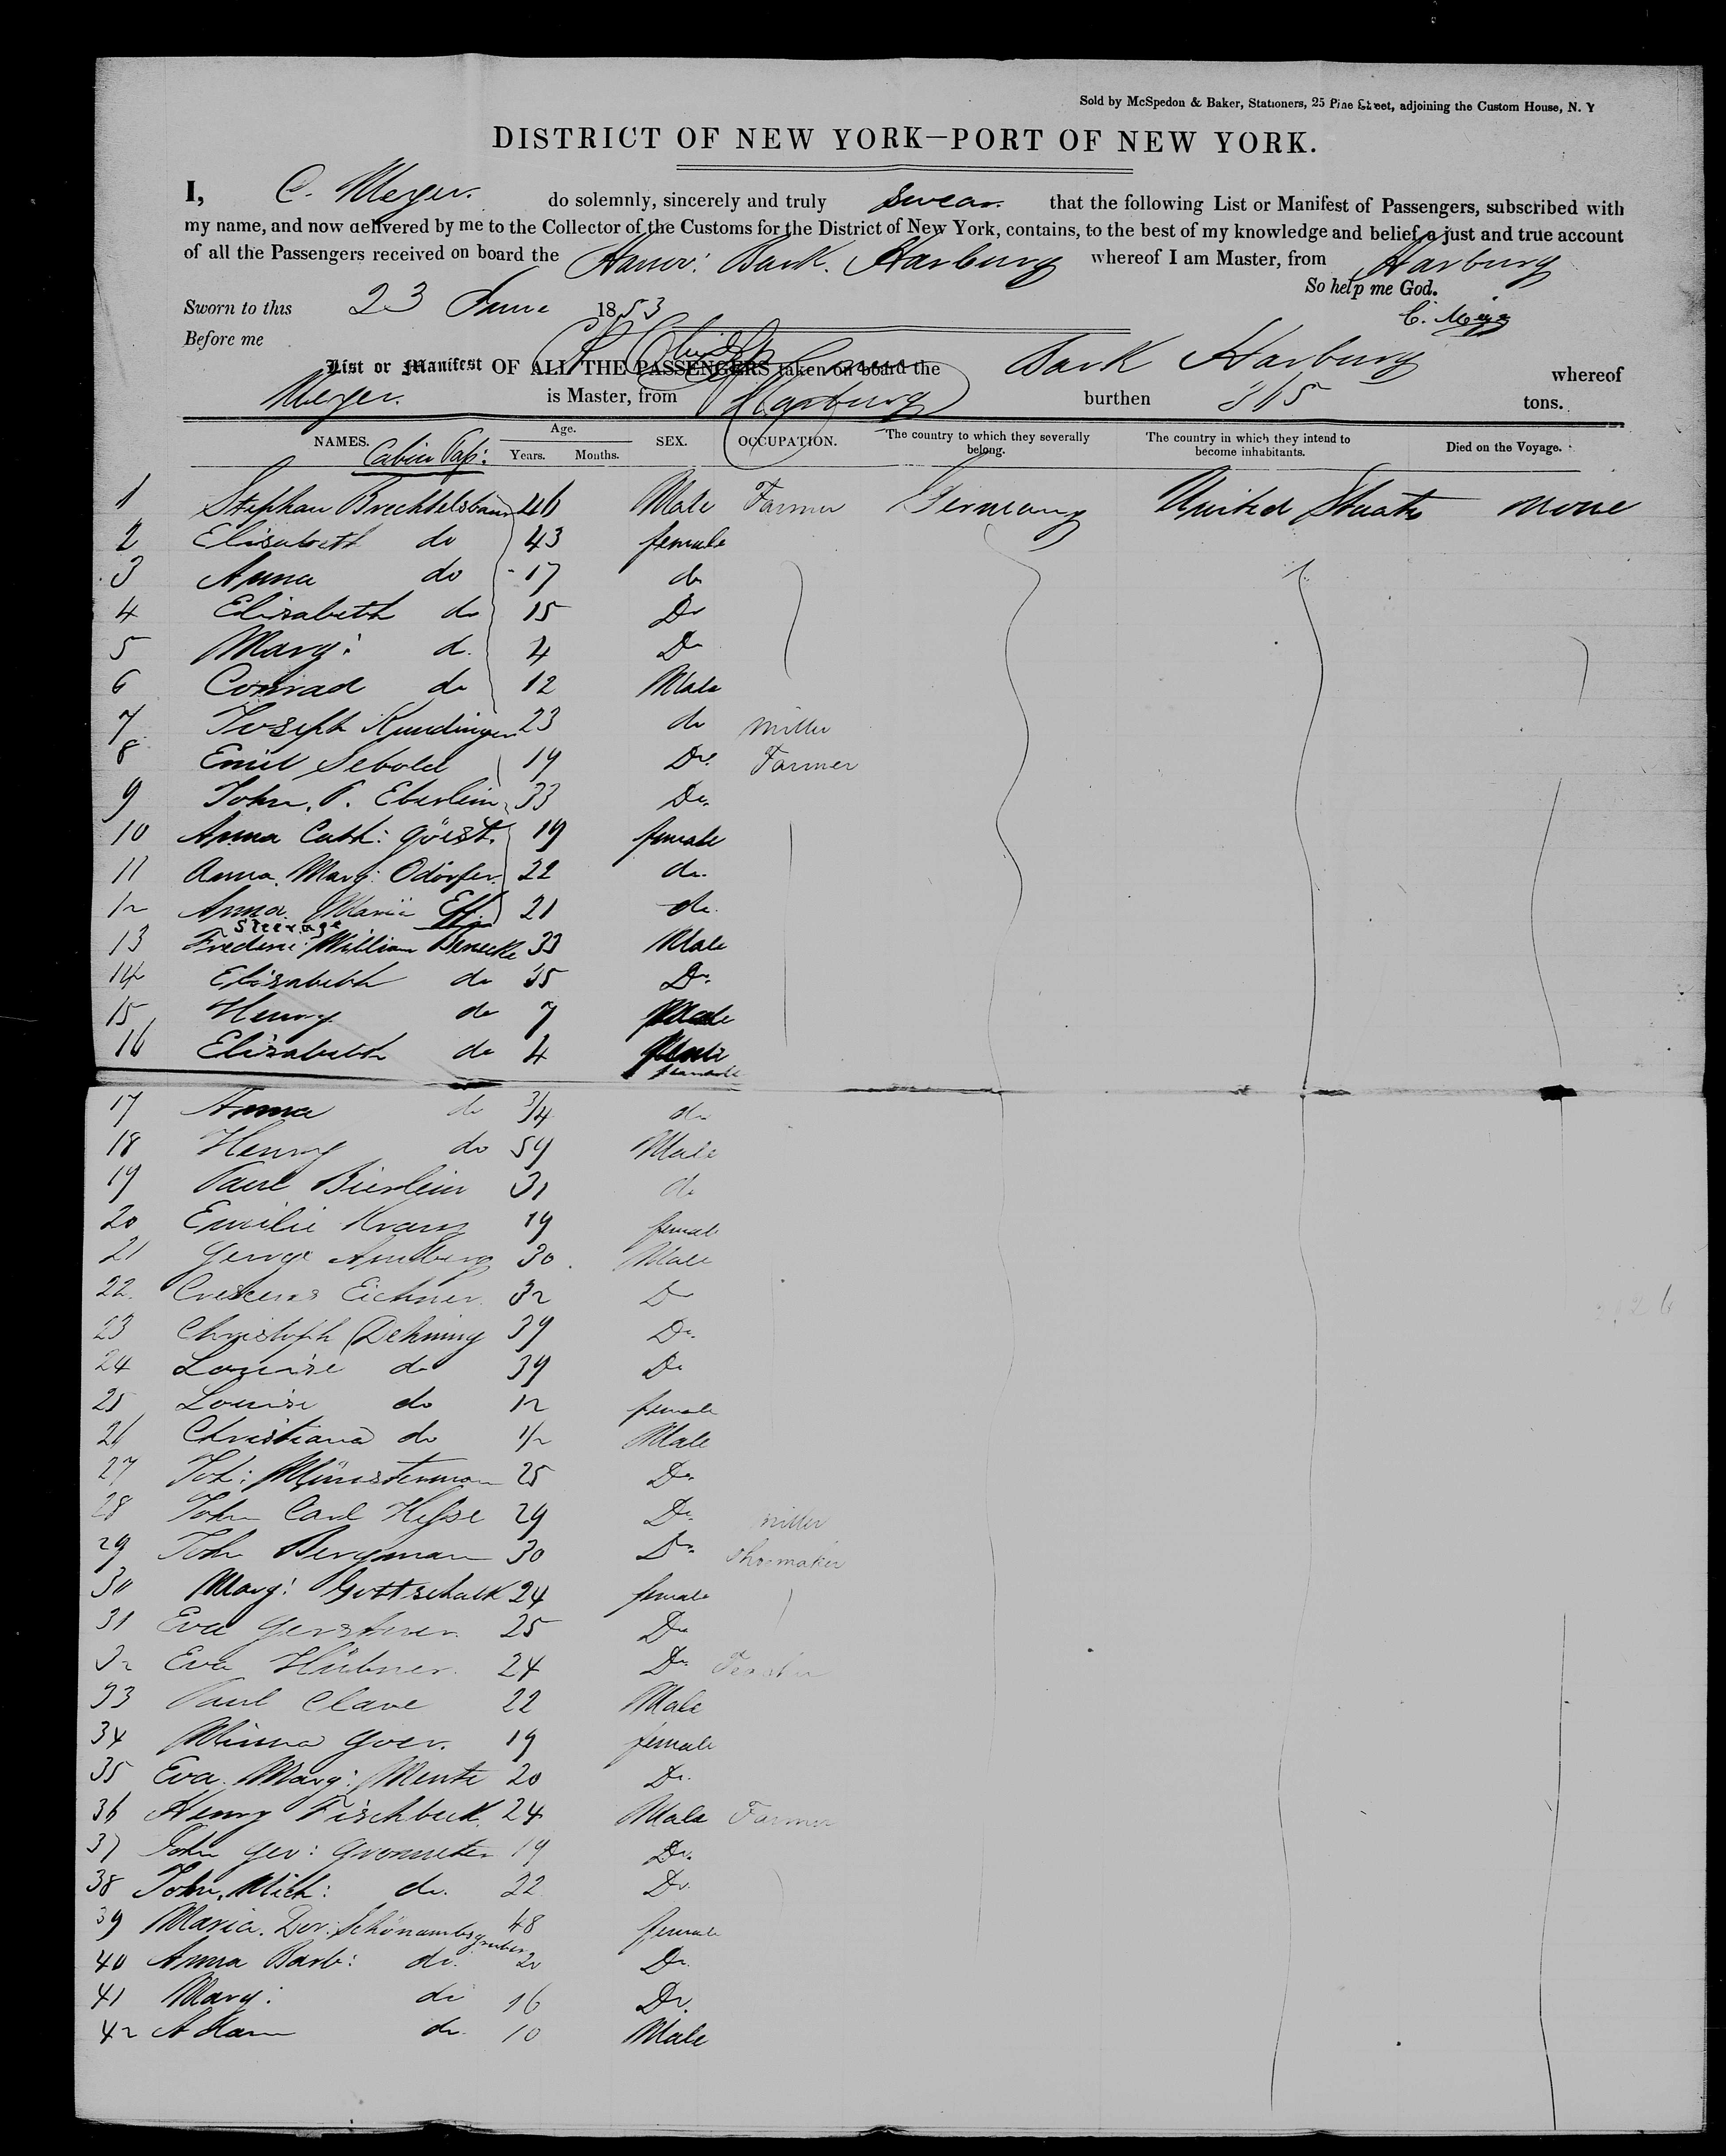 Sold by McSpedon & Baker, Stationers, 25 Pine Street, adjoining the Custom House, N. Y
DISTRICT OF NEW YORK—PORT OF NEW YORK.
I, C. Meyer. do solemnly, sincerely and truly swear that the following List or Manifest of Passengers, subscribed with
my name, and now delivered by me to the Collector of the Customs for the District of New York, contains, to the best of my knowledge and belief, a just and true account
of all the Passengers received on board the Hanov: Bark. Harburg whereof I am Master, from Harburg
So help me God.
Sworn to this 23 June 1853
C. Meyer
Before me
List or Manifest OF ALL THE PASSENGERS taken on board the Bark Harburg whereof
Meyer. is Master, from Harburg burthen 365 tons.
NAMES. Age. SEX. OCCUPATION. The country to which they severally belong. The country in which they intend to become inhabitants. Died on the Voyage.
Years. Months.
Cabin Pass:
1 Stephan Brechtelsbaur 46 Male Farmer Germany United States none
2 Elisabeth do 43 female
3 Anna do 17 do
4 Elizabeth do 15 Do
5 Marg: d. 4 Do
6 Conrad do 12 Male
7 Joseph Kundinger 23 do Miller
8 Emil Sebold 19 Do. Farmer
9 John. P. Eberlein 33 Do.
10 Anna Cath: Göist. 19 female
11 Anna. Marg: Odörfer. 22 do.
12 Anna. Maria 21 do.
Steerage
13 Frederic William Benecke 33 Male
14 Elizabeth do 35 Do.
15 Henry do 7 Male
16 Elizabeth do 4 female
17 Anna do 3/4 do
18 Henry do 59 Male
19 Paul Bierlein 31 do
20 Emilie Kranz 19 female
21 George 30. Male
22. Eichner. 32 Do
23 Christoph Dehning 39 Do.
24 Louise do 39 Do
25 Louise do 12 female
26 Christiana do 1/2 Male
27 Joh: Münsterman 25 Do
28 John Carl Hesse 29 Do. Miller
29 Joh Bergman 30 Do. Shoemaker
30 Marg: Gottschalk 24 female
31 Eva Gerstner. 25 Do
32 Eva Hübner. 24 Do
33 Paul Clave 22 Male
34 Minna Goer. 19 female
35 Eva. Marg: Mente 20 Do.
36 Henry Fischbeck. 24 Male Farmer
37 John Geo: 19 Do.
38 John. Mich: do. 22 Do.
39 Maria. Dor: Schönambsgruber 48 female
40 Anna Barb: do. 20 Do.
41 Marg: do 16 Do.
42 Adam do. 10 Male